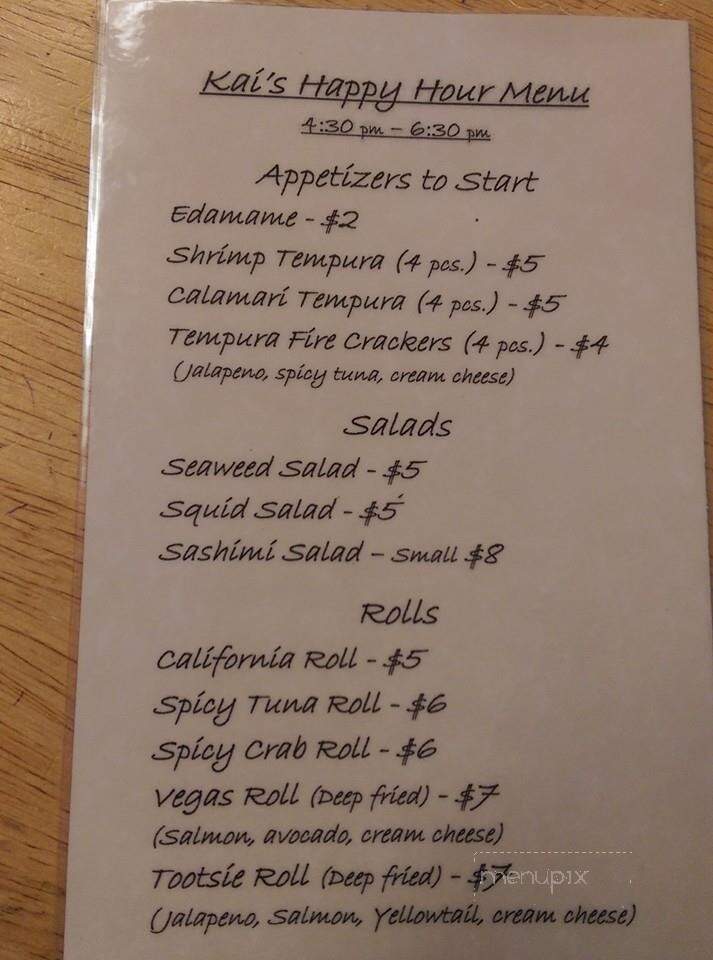 Kai's Happy Hour Menu
4:30 pm – 6:30 pm
Appetizers to Start
Edamame - $2
Shrimp Tempura (4 pcs.) - $5
Calamari Tempura (4 pcs.) - $5
Tempura Fire Crackers (4 pcs.) - $4
(Jalapeno, spicy tuna, cream cheese)
Salads
Seaweed Salad - $5
Squid Salad - $5
Sashimi Salad – Small $8
Rolls
California Roll - $5
Spicy Tuna Roll - $6
Spicy Crab Roll - $6
Vegas Roll (Deep fried) - $7
(Salmon, avocado, cream cheese)
Tootsie Roll (Deep fried) - $7
menupix
(Jalapeno, Salmon, Yellowtail, cream cheese)